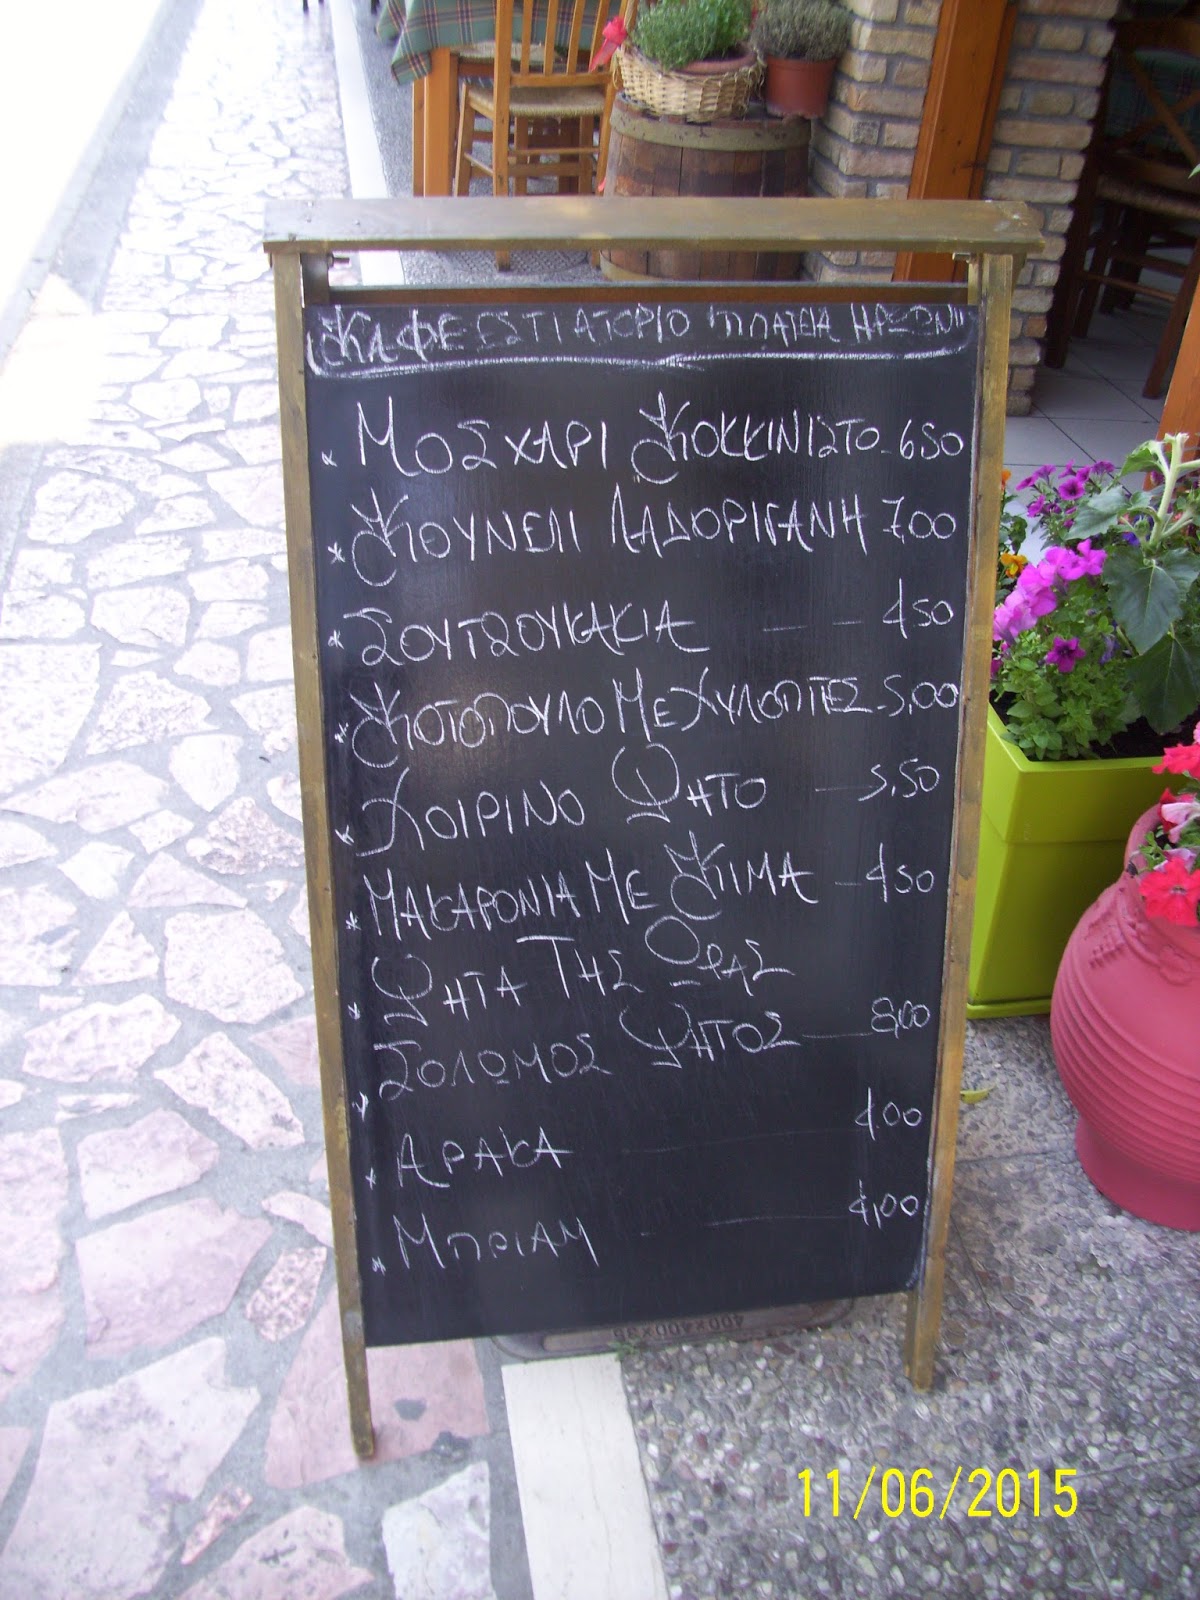 ΚΑΦΕ ΕΣΤΙΑΤΟΡΙΟ "ΠΛΑΤΕΙΑ ΗΡΩΩΝ"
* ΜΟΣΧΑΡΙ ΚΟΚΚΙΝΙΣΤΟ - 650
* ΚΟΥΝΕΛΙ ΛΑΔΟΡΙΓΑΝΗ - 7,00
* ΣΟΥΤΖΟΥΚΑΚΙΑ - - 450
* ΚΟΤΟΠΟΥΛΟ ΜΕ ΧΥΛΟΠΙΤΕΣ - 5,00
* ΧΟΙΡΙΝΟ ΨΗΤΟ - 5,50
* ΜΑΚΑΡΟΝΙΑ ΜΕ ΚΙΜΑ - 450
* ΨΗΤΑ ΤΗΣ ΩΡΑΣ
* ΣΟΛΩΜΟΣ ΨΗΤΟΣ - 8,00
* ΑΡΑΚΑ - 4,00
* ΜΠΡΙΑΜ - - 4,00
400X400X35
11/06/2015